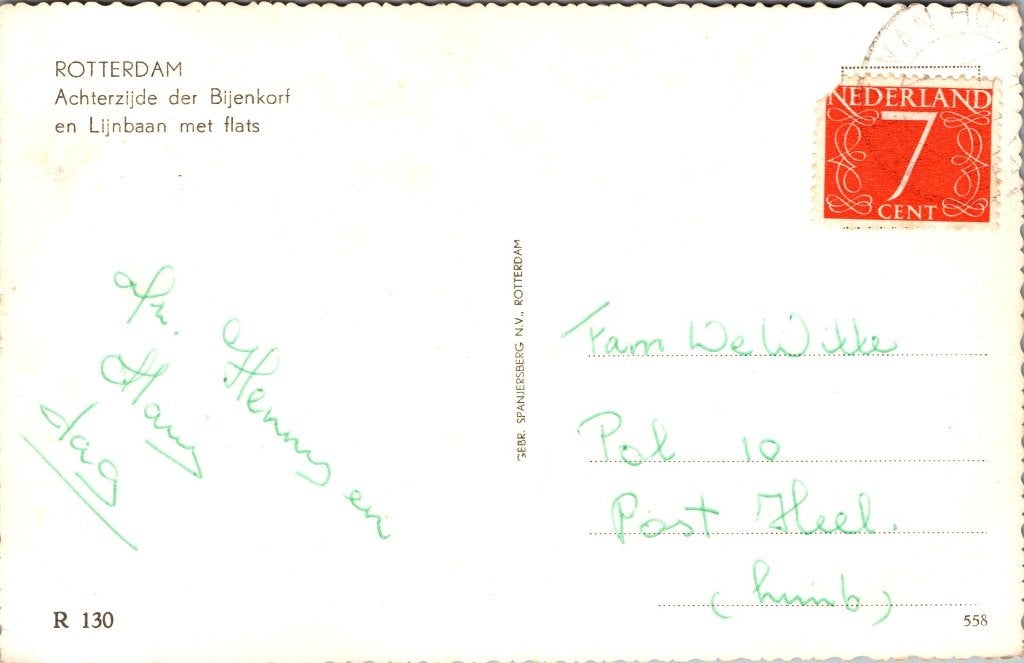 ROTTERDAM
Achterzijde der Bijenkorf
en Lijnbaan met flats
NEDERLAND
7
CENT
VAN HO
GEBR. SPANJERSBERG N.V., ROTTERDAM
Henny en
dag
Fam De Witte
Pol 10
Post Heel.
(Limb)
R 130
558